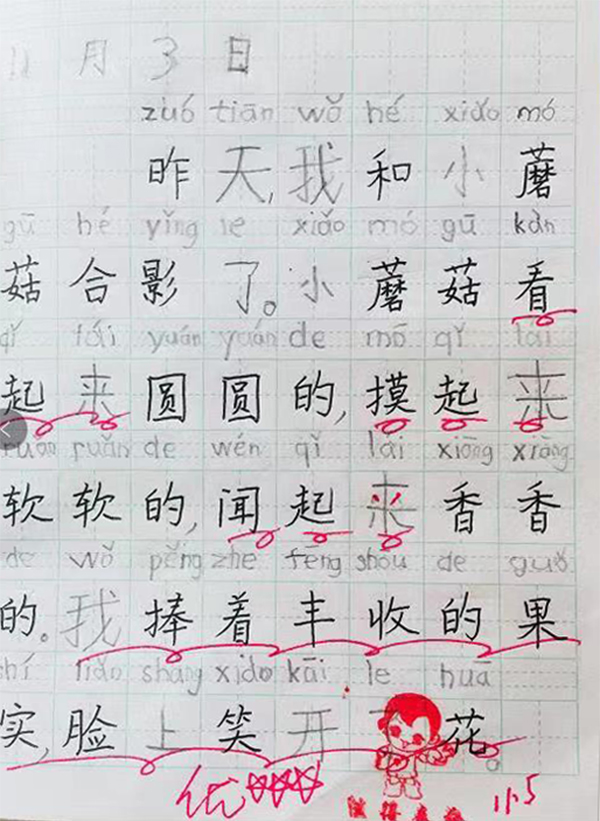 11月3日
zuó tiān wǒ hé xiǎo mó
昨天,我和小蘑
gū hé yǐng le xiǎo mó gū kàn
菇合影了。小蘑菇看
qǐ lái yuán yuán de mō qǐ lái
起来圆圆的,摸起来
ruǎn ruǎn de wén qǐ lái xiāng xiāng
软软的,闻起来香香
de wǒ pěng zhe fēng shōu de guǒ
的。我捧着丰收的果
shí liǎn shàng xiào kāi le huā
实,脸上笑开了花。
优 11.5